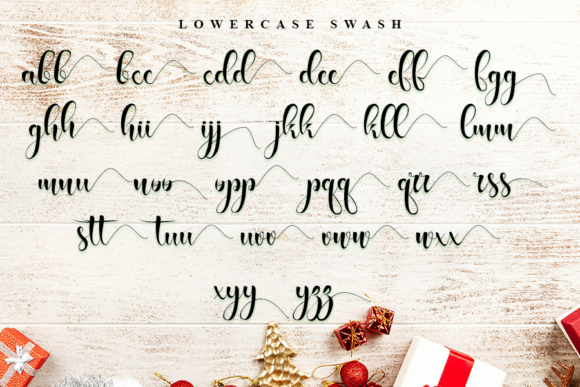 LOWERCASE SWASH
abb bcc cdd dee eff fgg
ghh hii ijj jkk kll lmm
mnn noo opp pqq qrr rss
stt tuu uvv vww wxx
xyy yzz